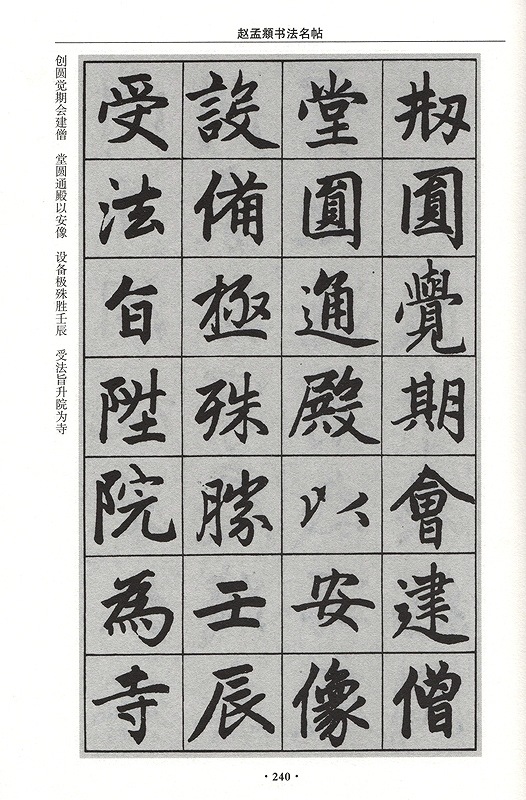 赵孟頫书法名帖
刱圓覺期會建僧
堂圓通殿以安像
設備極殊勝壬辰
受法旨陞院為寺
创圆觉期会建僧 堂圆通殿以安像 设备极殊胜壬辰 受法旨升院为寺
·240·